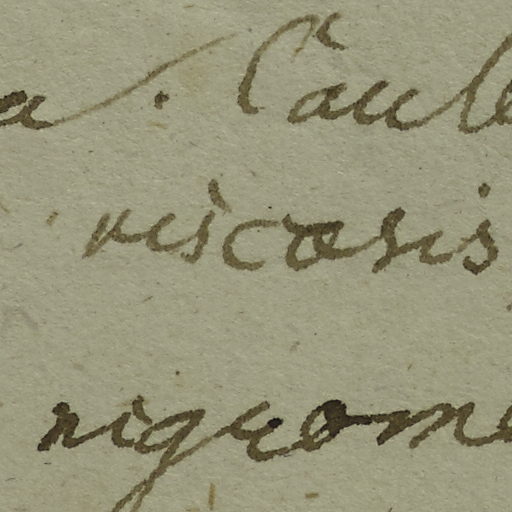 a. Caule
viscosis
nigrom